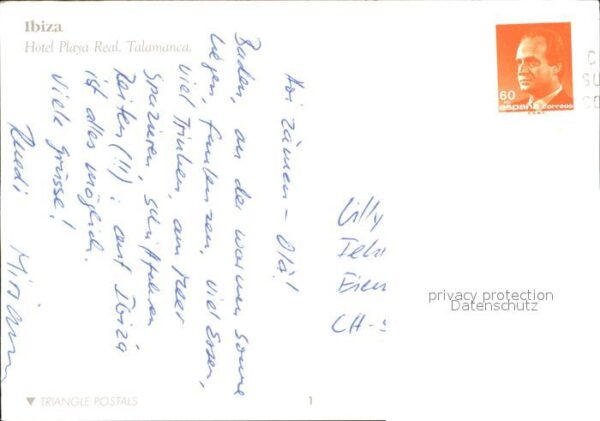 Ibiza
Hotel Playa Real. Talamanca.
Hoi zämen – Olá!
Baden, an der warmen Sonne
liegen, faulenzen, viel Essen,
viel Trinken, am Meer
Spazieren,
Reiten (!!) : auf Ibiza
ist alles möglich.
Viele Grüsse!
Ruedi Miriam
60
PTA
españa correos
Lilly
CH-
privacy protection
Datenschutz
▼ TRIANGLE POSTALS
1